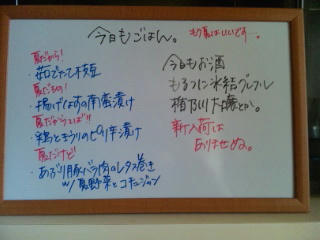 今日もごはん。
もう夏はいいです…。
夏だから!
・茹でたて枝豆
夏だもの!
・揚げなすの南蛮漬け
夏だからやっぱり
・鶏ときうりのピリ辛漬け
夏だけど
・あぶり豚バラ肉のレタス巻き
w/夏野菜とコチュジャン
今日もお酒
もるつに氷結グレフル
楯乃川大藤とか。
新入荷は
ありませぬ。